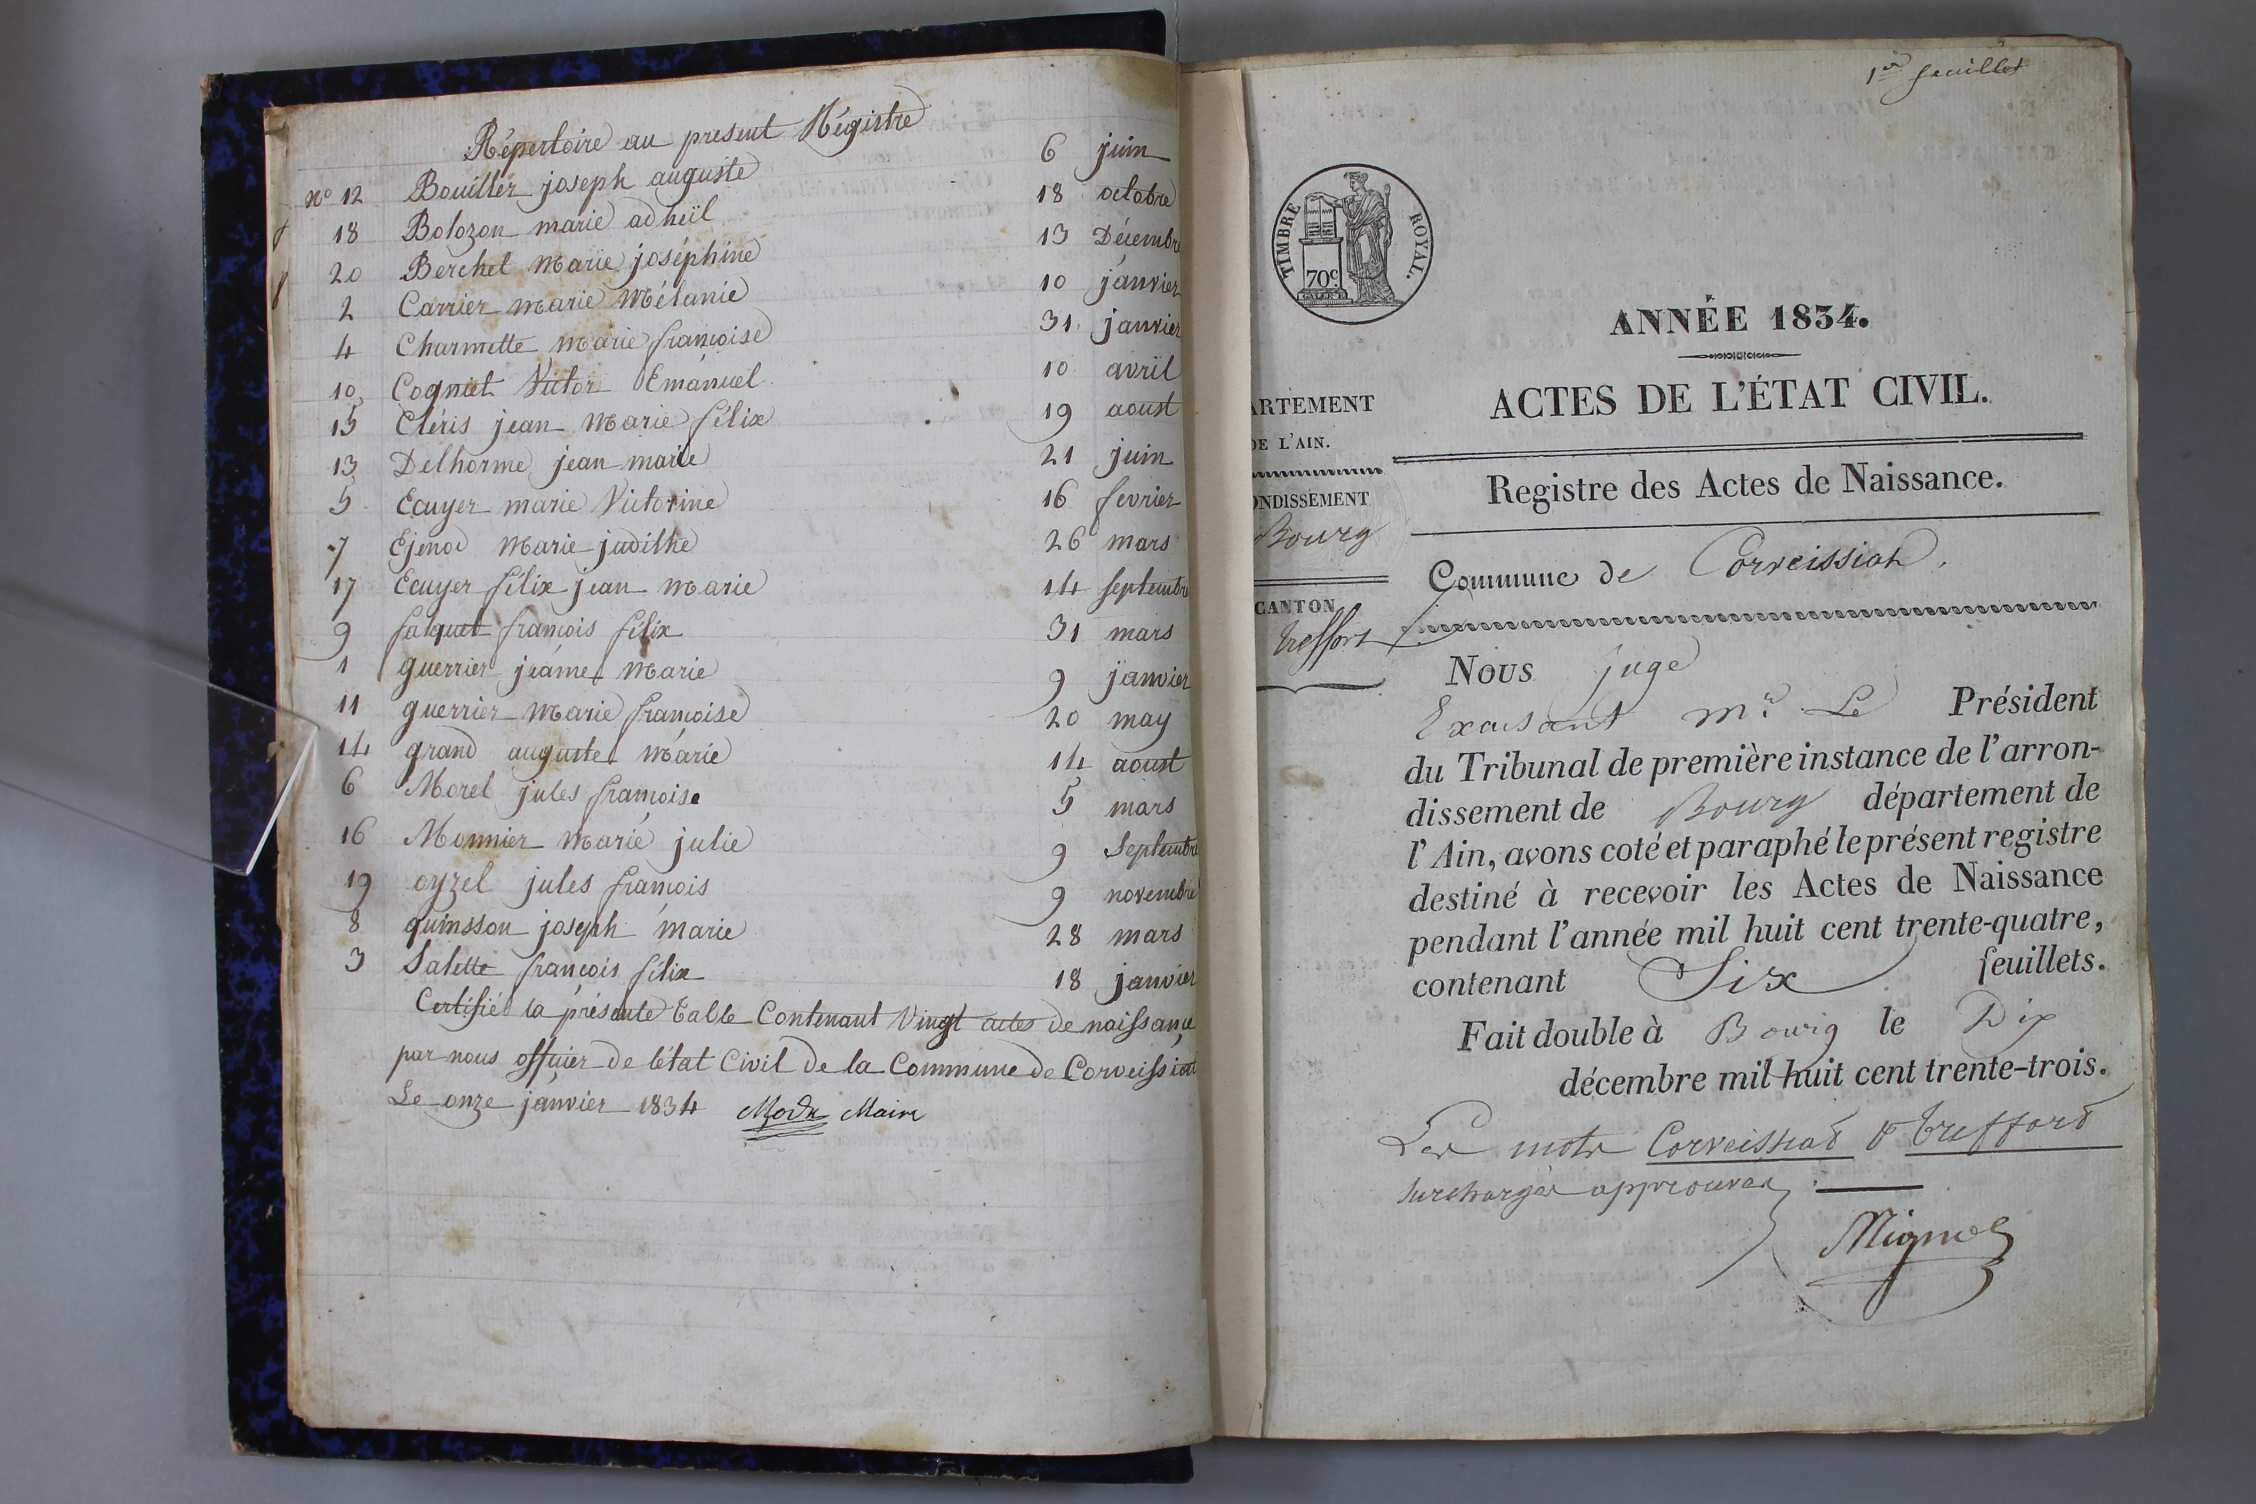 Répertoire au present Régistre
n° 12 Bouiller joseph auguste 6 juin
18 Bolozon marie adheil 18 octobre
20 Berchet marie joséphine 13 Décembre
2 Carrier marie Mélanie 10 janvier
4 Charmette marie françoise 31 janvier
10 Cognat Victor Emanuel 10 avril
15 Cléris jean Marie félix 19 aoust
13 Delhorme jean marie 21 juin
5 Ecuyer marie Victorine 16 fevrier
7 Ejenod Marie judithe 26 mars
17 Ecuyer félix jean marie 14 septembre
9 falquet françois félix 31 mars
1 guerrier Marie 9 janvier
11 guerrier Marie françoise 20 may
14 grand auguste Marie 14 aoust
6 Morel jules françoise 5 mars
16 Monnier marie julie 9 Septembre
19 oyzel jules françois 9 novembre
8 quinsson joseph marie 28 mars
3 Salette françois félix 18 janvier
Certifié la présente table Contenant Vingt actes de naissance
par nous officier de l'état Civil de la Commune de Corveissiat
Le onze janvier 1834 Maire
1er feuillet
TIMBRE ROYAL.
70c
ANNÉE 1834.
ACTES DE L'ÉTAT CIVIL.
ARTEMENT
DE L'AIN.
Registre des Actes de Naissance.
ONDISSEMENT
Bourg
Commune de Corveissiat.
CANTON
treffort
Nous juge
Excusant Mr. Le Président
du Tribunal de première instance de l'arron-
dissement de Bourg département de
l'Ain, avons coté et paraphé le présent registre
destiné à recevoir les Actes de Naissance
pendant l'année mil huit cent trente-quatre,
contenant Six feuillets.
Fait double à Bourg le Dix
décembre mil huit cent trente-trois.
Les mots Corveissiat & treffort
surchargés approuvés